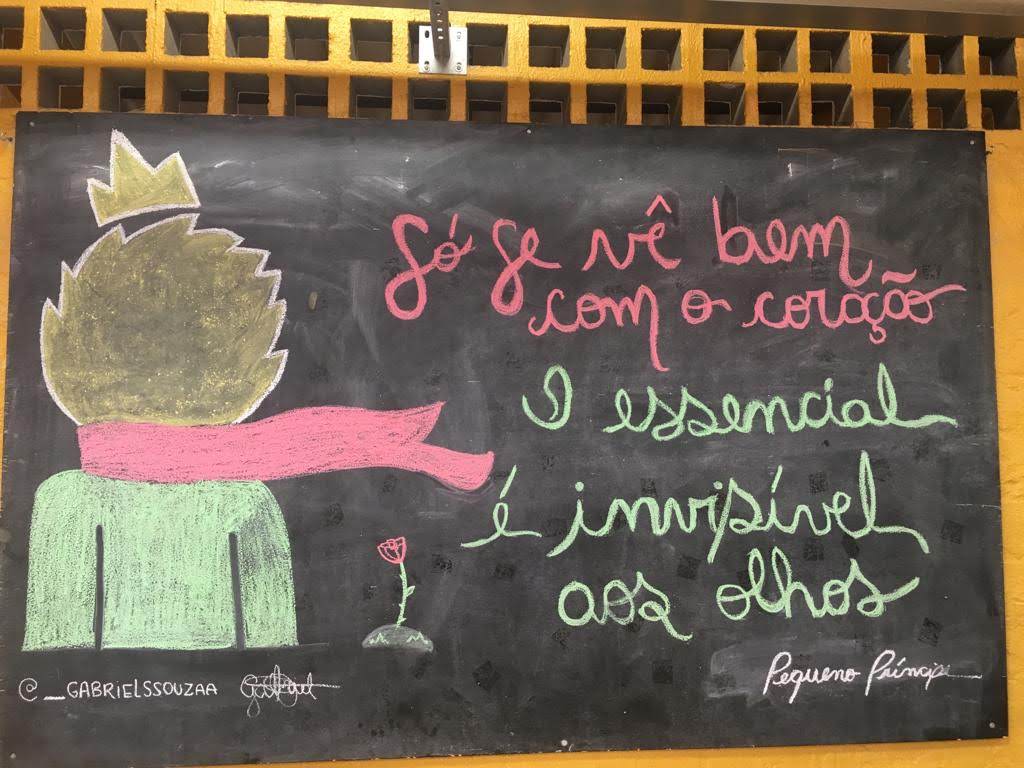 Só se vê bem
com o coração
O essencial
é invisível
aos olhos
Pequeno Príncipe
@_GABRIELSSOUZAA Gabriel